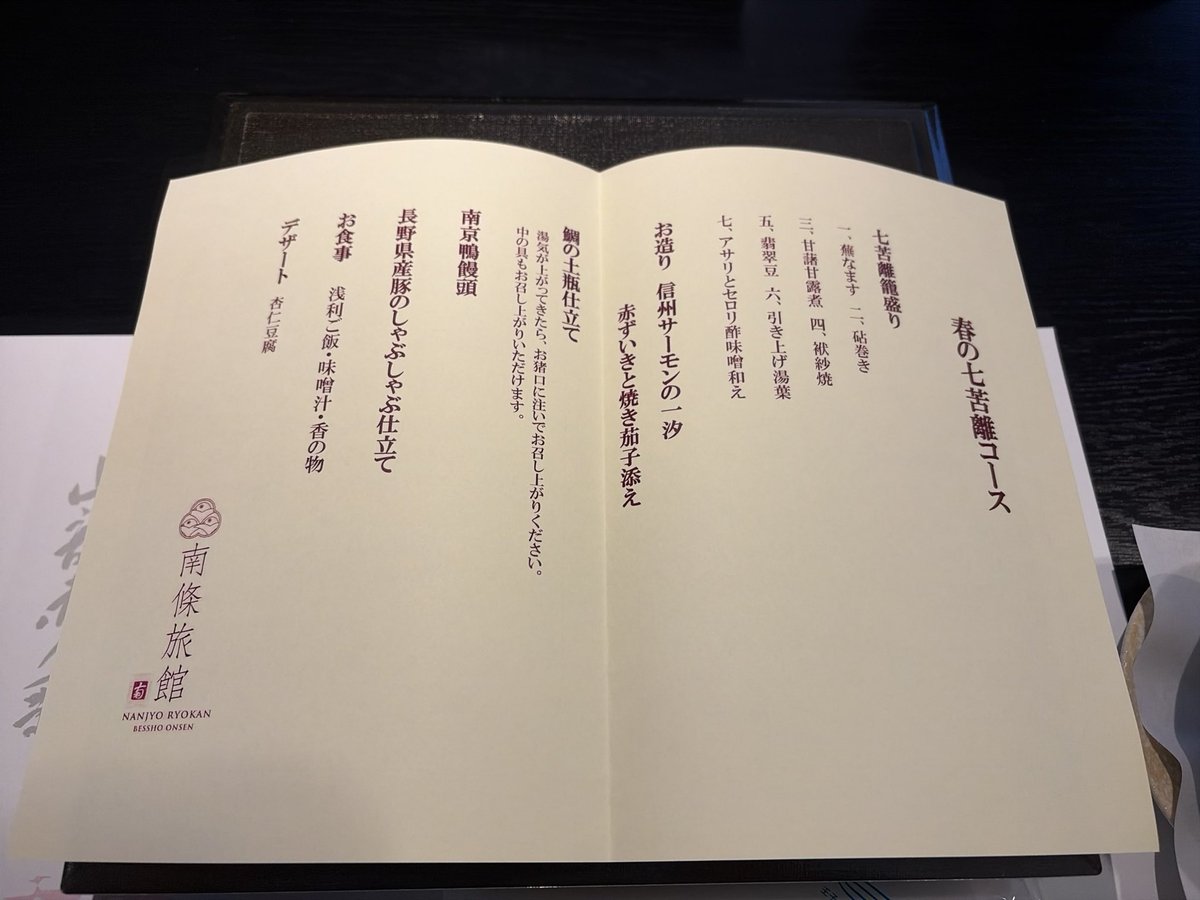 春の七苦離コース
七苦離籠盛り
一、蕪なます 二、砧巻き
三、甘藷甘露煮 四、袱紗焼
五、翡翠豆 六、引き上げ湯葉
七、アサリとセロリ酢味噌和え
お造り 信州サーモンの一汐
赤ずいきと焼き茄子添え
鯛の土瓶仕立て
湯気が上がってきたら、お猪口に注いでお召し上がりください。
中の具もお召し上がりいただけます。
南京鴨饅頭
長野県産豚のしゃぶしゃぶ仕立て
お食事 浅利ご飯・味噌汁・香の物
デザート 杏仁豆腐
南條旅館
NANJYO RYOKAN
BESSHO ONSEN